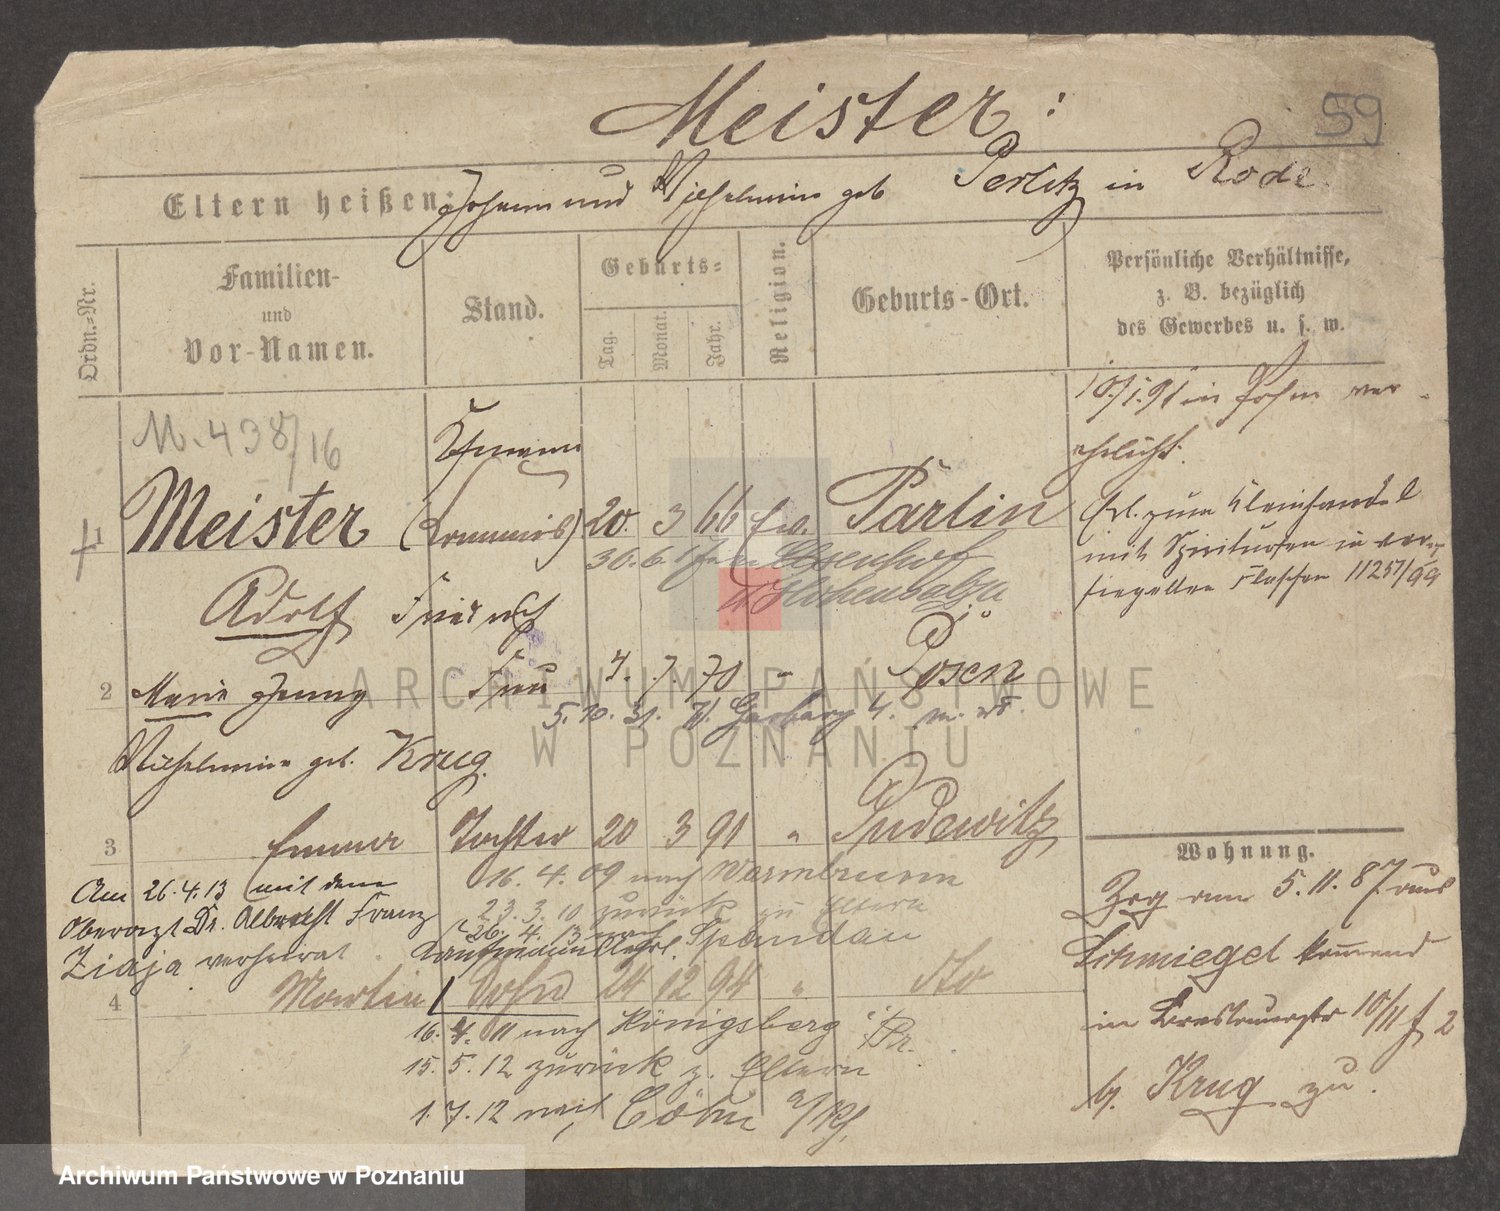 Meister:
59
Eltern heißen: Johann und Wilhelmine geb Perlitz in Rode
Ordn.-Nr.
Familien-
und
Vor-Namen.
Stand.
Geburts-
Tag.
Monat.
Jahr.
Religion.
Geburts-Ort.
Persönliche Verhältnisse,
z. B. bezüglich
des Gewerbes u. s. w.
M. 438/16
Ehemann
10/1.91 in Posen ver-
ehelicht.
1 Meister (Commis) 20. 3 66 ev. Parlin
30.6.
Hohensalza
Adolf Friedrich
Erl. zum Kleinhandel
mit Spirituosen in ver-
siegelten Flaschen 11257/99
2 Marie Jenny Frau 4. 7 70 " Posen
5. 10. 31. Gerberg 4.
Wilhelmine geb. Krug
3 Emma Tochter 20 3 91 " Pudewitz
16. 4. 09 nach Warmbrunn
23. 3. 10 zurück zu Eltern
26. 4. 13 nach Spandau
Am 26.4.13 mit dem
Oberarzt Dr. Albrecht Franz
Ziaja verheirat.
Kaufmannslehrl.
4 Martin Sohn 24 12 94 " dto
16. 4. 11 nach Königsberg i/Pr.
15. 5. 12 zurück z. Eltern
1. 7. 12 nach Cöln a/Rh.
Wohnung.
Zog am 5. 11. 87 aus
Schmiegel kommend
in Breslauerstr 10/11 f 2
b. Krug zu.
ARCHIWUM PAŃSTWOWE
W POZNANIU
Archiwum Państwowe w Poznaniu